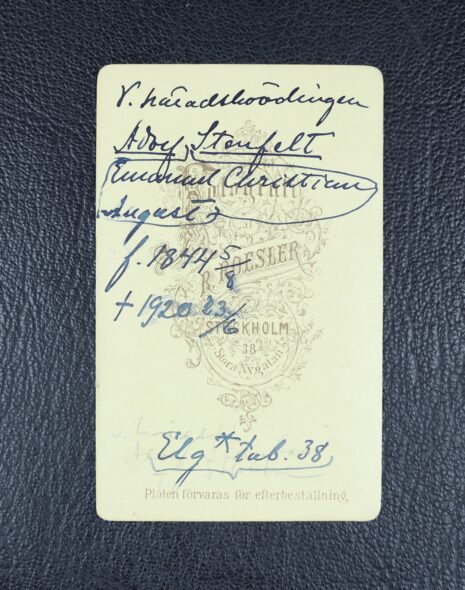 V. häradshövdingen
Adolf Stenfelt
Emanuel Christian
August
Fotografi
af
R. ROESLER
f. 1844 5/8
† 1920 23/6
STOCKHOLM
38
Stora Nygatan
Elg * tab. 38
Plåten förvaras för efterbeställning.